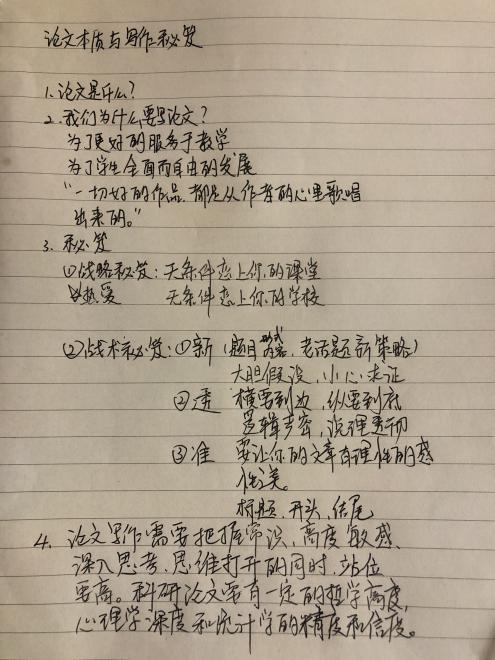 论文本质与写作秘笈
1.论文是什么?
2.我们为什么要写论文?
为了更好的服务于教学
为了学生全面而自由的发展
"一切好的作品,都是从作者的心里歌唱
出来的。"
3.秘笈
①战略秘笈:无条件恋上你的课堂
热爱 无条件恋上你的学校
(2)战术秘笈:①新(题目、内容、老话题新策略)
大胆假设,小心求证
②透 横要到边,纵要到底
逻辑严密,说理透彻
③准 要让你的文章有理性的感
性美。
标题、开头、结尾
4.论文写作需要把握常识、高度敏感、
深入思考、思维打开的同时,站位
要高。科研论文需有一定的哲学高度,
心理学深度和统计学的精度和信度。